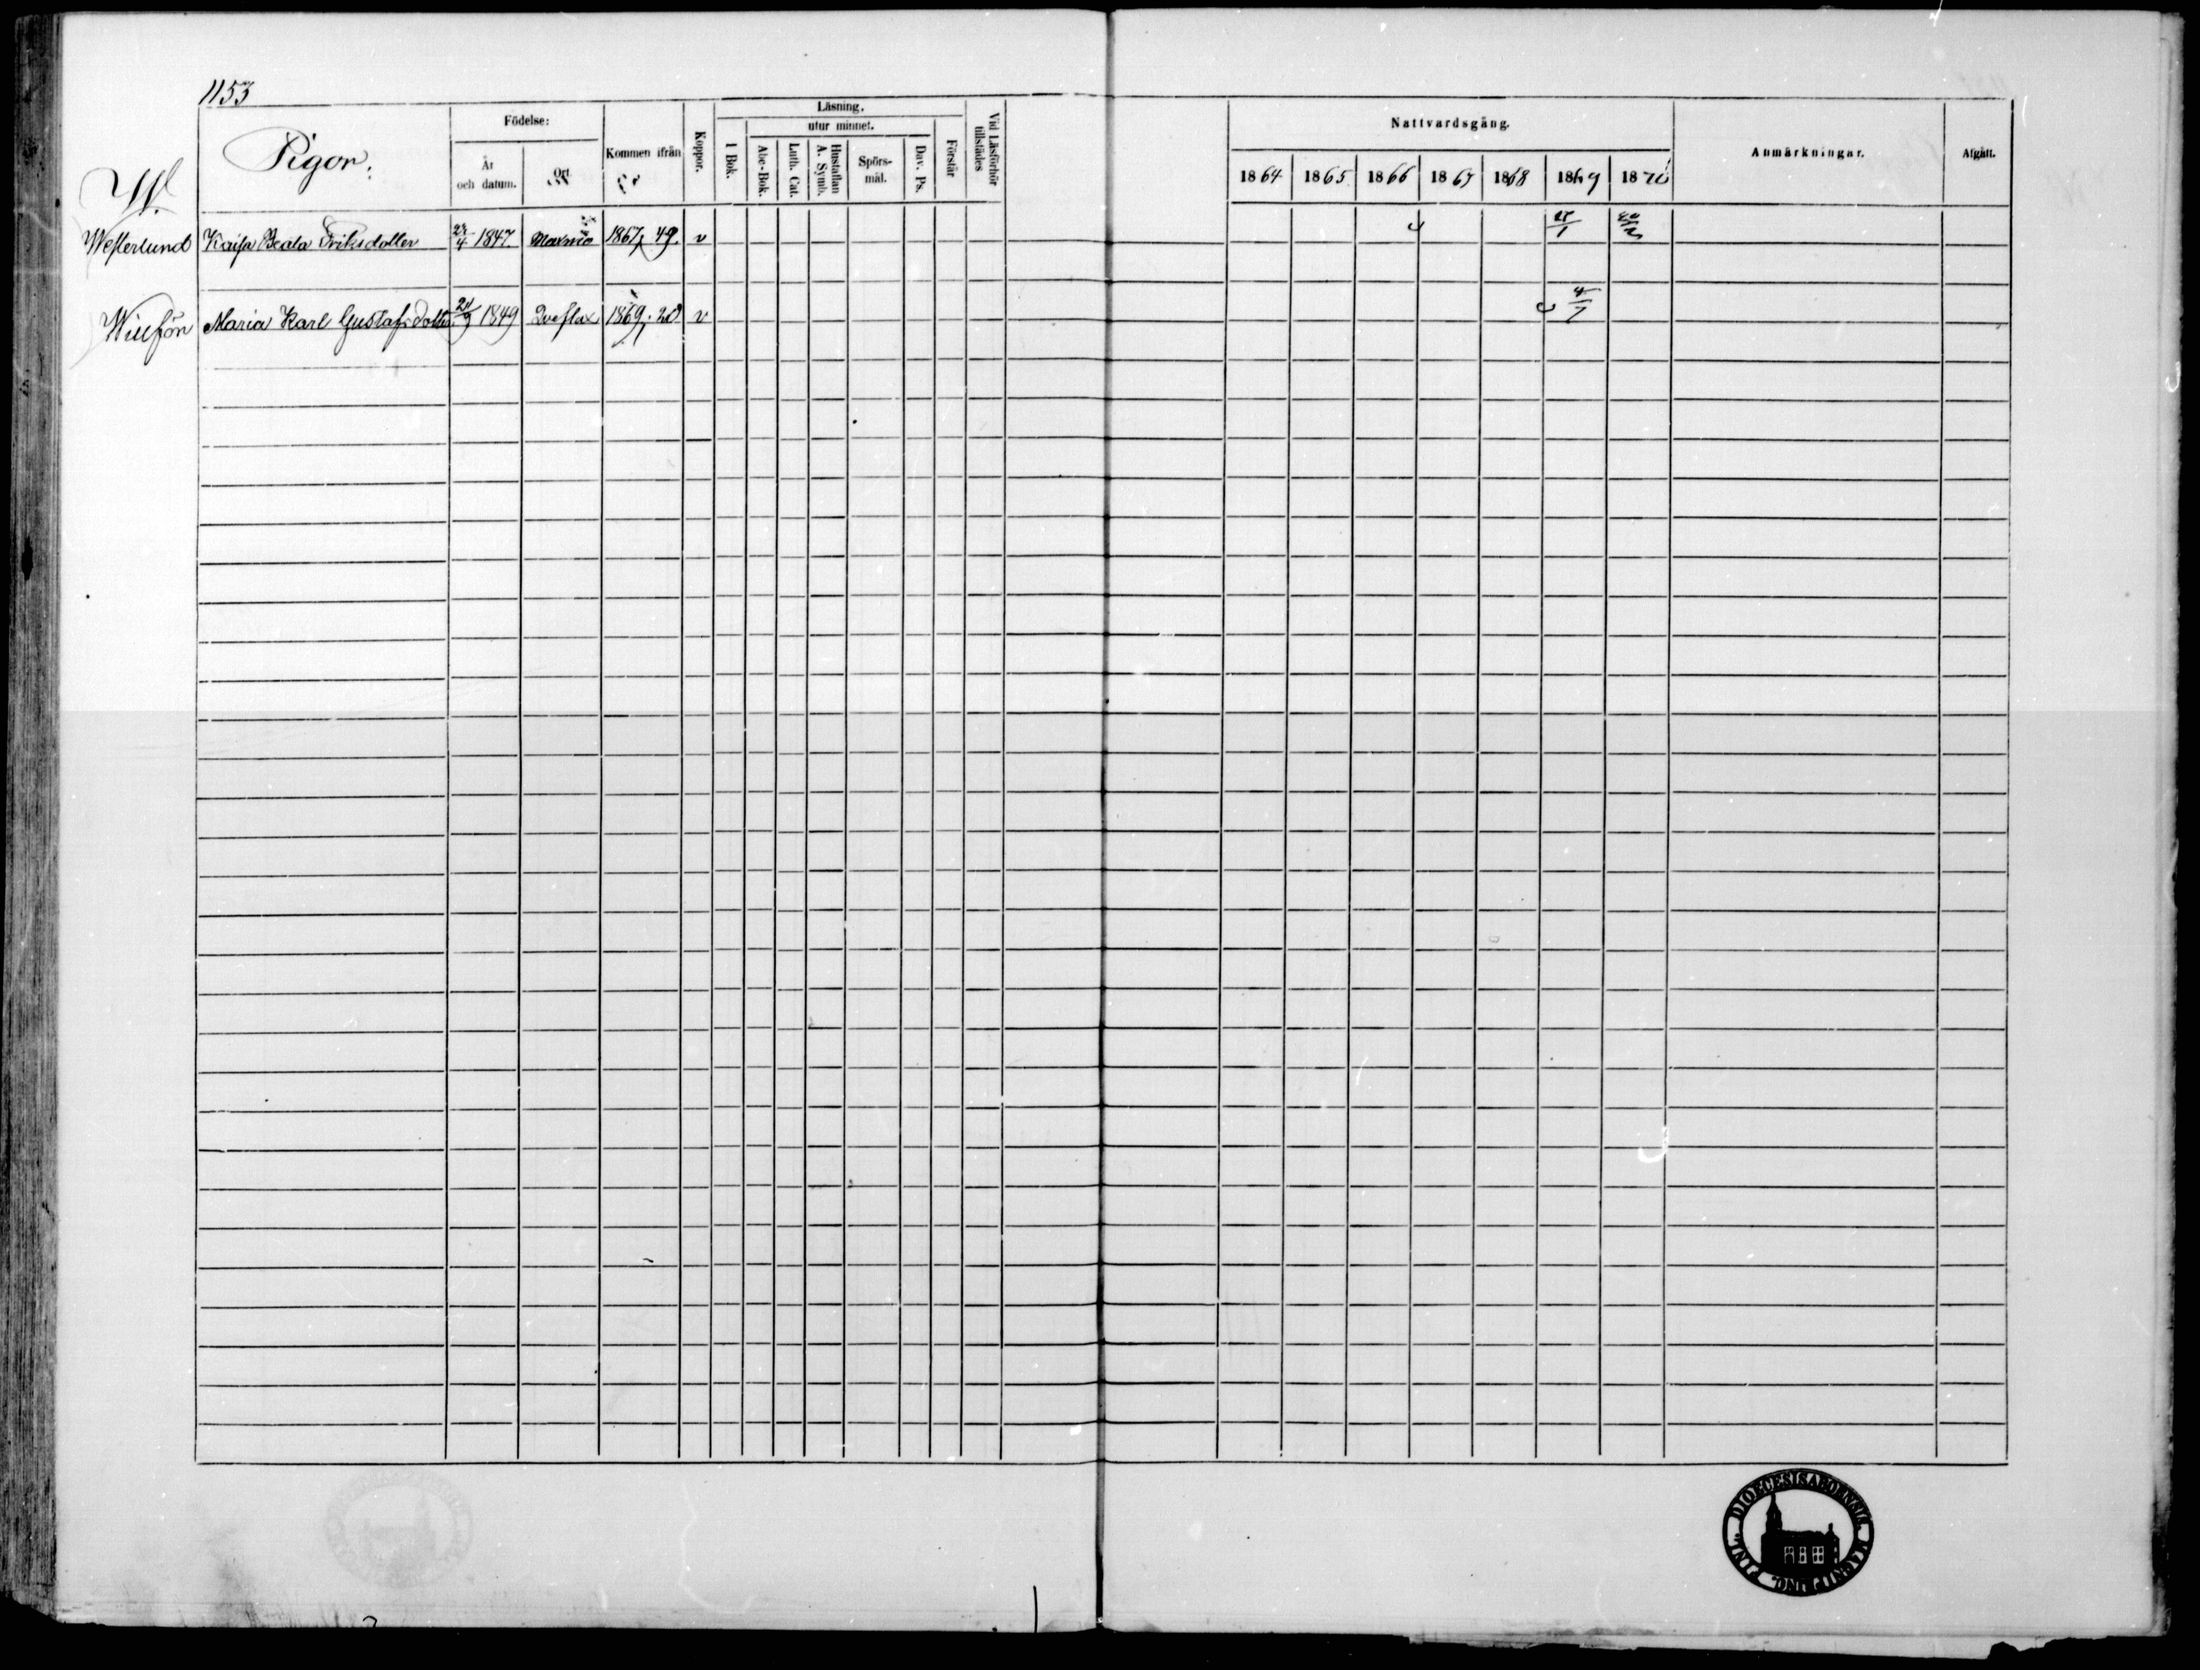 1153
Pigor.
Födelse:
År och datum.
Ort.
Kommen ifrån
Koppor.
Läsning.
utur minnet.
I Bok.
Abc-Bok.
Luth. Cat.
Hustaflan A. Symb.
Spörs-mål.
Dav. Ps.
Förstår
Vid Läsförhör tillstädes
Nattvardsgång.
1864 1865 1866 1867 1868 1869 1870
Anmärkningar.
Afgått.
W.
Westerlund Kaisa Beata Eriksdotter 1847. Maxmo 1867, 49. v
Maria Karl Gustafsdotter 1849 Qveflax 1869. 20 v 4/7
FINL. DIOECESIS ABOENSIS. MAGNIPRINC.